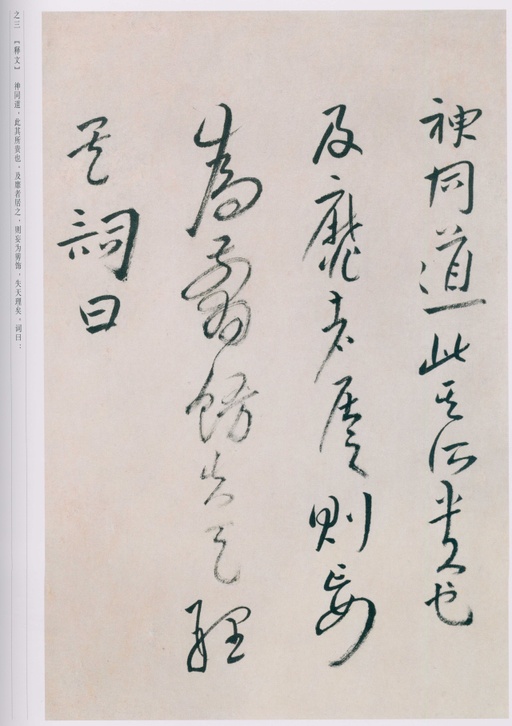 神同道此其所貴也
及靡者居之則妄
為翦飾失天理
其詞曰
之三 【释文】 神同道，此其所贵也，及靡者居之，则妄为翦饰，失天理矣，词曰：